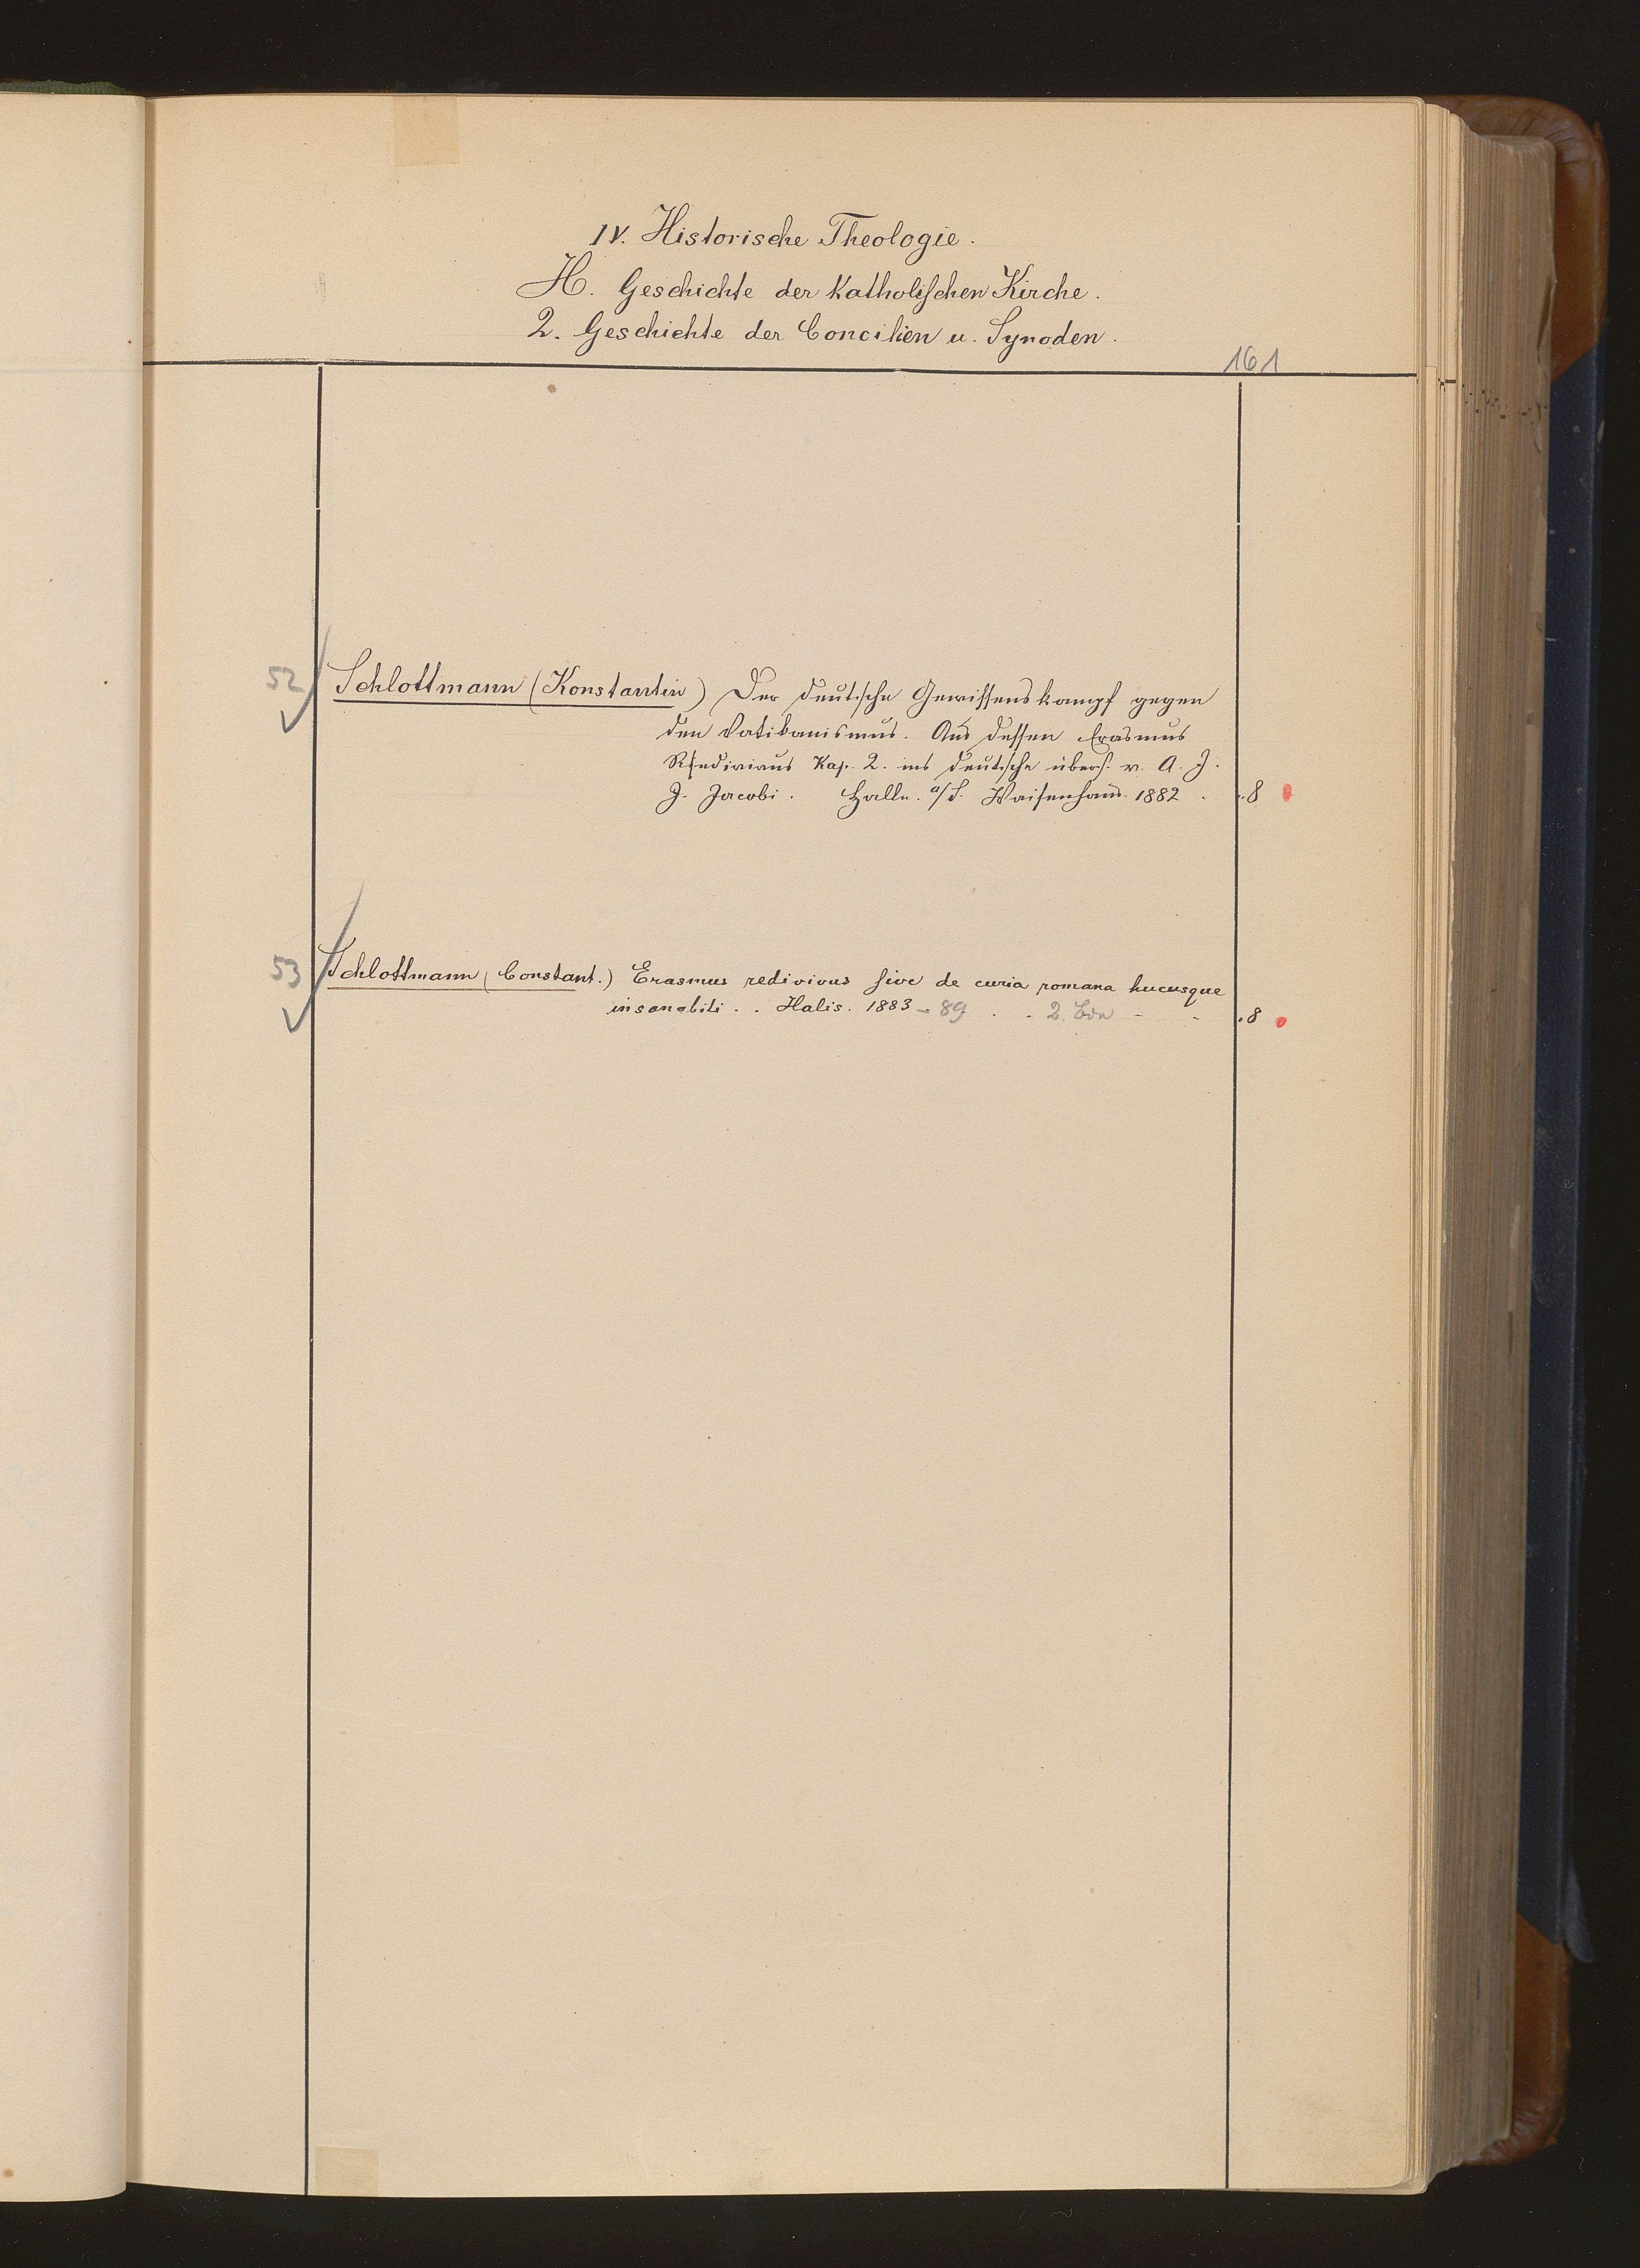 IV. Historische Theologie.
H. Geschichte der Katholischen Kirche.
2. Geschichte der Concilien u. Synoden.
161
52 Schlottmann (Konstantin) Der deutsche Gewissenskampf gegen
den Vatikanismus. Aus dessen Erasmus
Redivivus Kap. 2. ins deutsche übers. v. A. J.
J. Jacobi. Halle. a/S. Waisenhaus. 1882 . .8
53 Schlottmann (Constant.) Erasmus redivivus sive de curia romana hucusque
insanabili . . Halis. 1883 - 89 . . 2 Bde - - .8